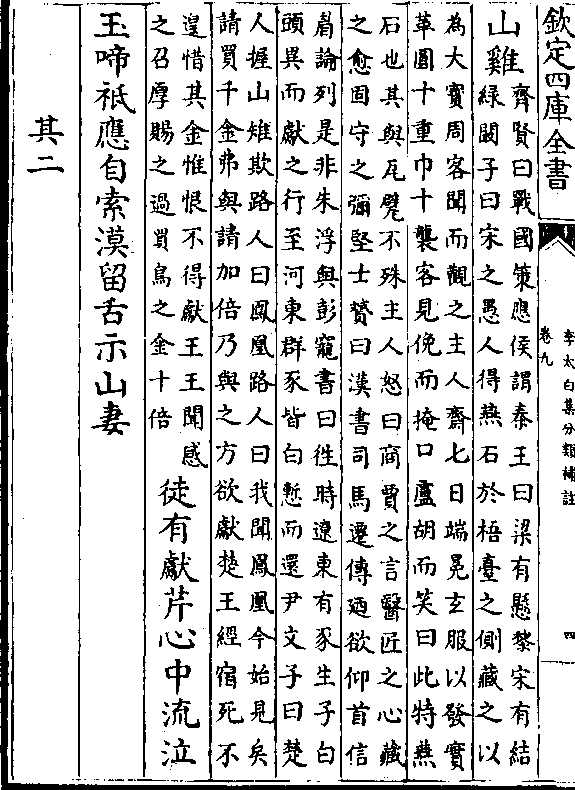 欽定四庫全書
李太白集分類補註
卷九
四
山雞
齊賢曰戰國策應侯謂秦王曰梁有懸黎宋有結
綠闕子曰宋之愚人得燕石於梧臺之側藏之以
為大寶周客聞而觀之主人齋七日端冕玄服以發寶
革匱十重巾十襲客見俛而掩口盧胡而笑曰此特燕
石也其與瓦甓不殊主人怒曰商賈之言醫匠之心藏
之愈固守之彌堅士贇曰漢書司馬遷傳廼欲仰首信
眉論列是非朱浮與彭寵書曰徃時遼東有豕生子白
頭異而獻之行至河東群豕皆白慙而還尹文子曰楚
人握山雉欺路人曰鳳凰路人曰我聞鳳凰今始見矣
請買千金弗與請加倍乃與之方欲獻楚王經宿死不
遑惜其金惟恨不得獻王王聞感
之召厚賜之過買鳥之金十倍
徒有獻芹心中流泣
玉啼祗應自索漠留舌示山妻
其二